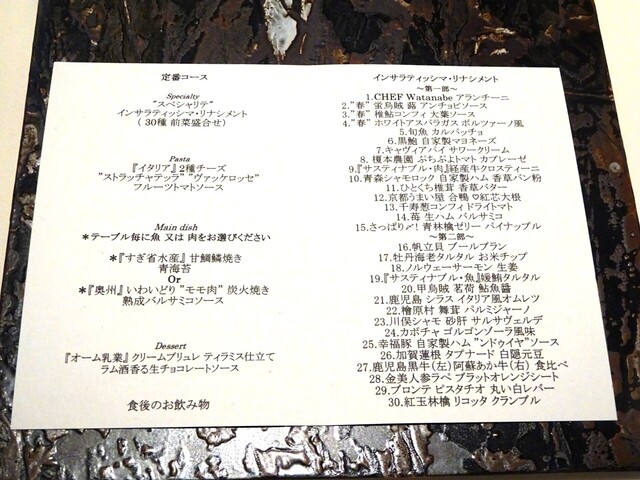 定番コース
Specialty
"スペシャリテ"
インサラティッシマ・リナシメント
(30種 前菜盛合せ)
Pasta
『イタリア』2種チーズ
"ストラッチャテッラ" "ヴァッケロッセ"
フルーツトマトソース
Main dish
＊テーブル毎に魚 又は 肉をお選びください
＊『すぎ省水産』甘鯛鱗焼き
青海苔
Or
＊『奥州』いわいどり"モモ肉" 炭火焼き
熟成バルサミコソース
Dessert
『オーム乳業』クリームブリュレ ティラミス仕立て
ラム酒香る生チョコレートソース
食後のお飲み物
インサラティッシマ・リナシメント
～第一部～
1.CHEF Watanabe アランチーニ
2."春" 蛍烏賊 蕗 アンチョビソース
3."春" 稚鮎コンフィ 大葉ソース
4."春" ホワイトアスパラガス ボルツァーノ風
5.旬魚 カルパッチョ
6.黒鮑 自家製マヨネーズ
7.キャヴィアパイ サワークリーム
8.榎本農園 ぷちぷよトマト カプレーゼ
9.『サスティナブル・肉』経産牛クロスティーニ
10.青森シャモロック 自家製ハム 香草パン粉
11.ひとくち椎茸 香草バター
12.京都うまい屋 合鴨 ♡紅芯大根
13.千寿葱コンフィドライトマト
14.苺 生ハム バルサミコ
15.さっぱり〆! 青林檎ゼリー パイナップル
～第二部～
16.帆立貝 ブールブラン
17.牡丹海老タルタル お米チップ
18.ノルウェーサーモン 生姜
19.『サスティナブル・魚』媛鮪タルタル
20.甲烏賊 茗荷 鮎魚醤
21.鹿児島 シラス イタリア風オムレツ
22.檜原村 舞茸 パルミジャーノ
23.川俣シャモ 砂肝 サルサヴェルデ
24.カボチャ ゴルゴンゾーラ風味
25.幸福豚 自家製ハム "ンドゥイヤ"ソース
26.加賀蓮根 タプナード 白隠元豆
27.鹿児島黒牛(左)阿蘇あか牛(右) 食比べ
28.金美人参ラペ ブラッドオレンジシート
29.ブロンテ ピスタチオ 丸い白レバー
30.紅玉林檎 リコッタ クランブル